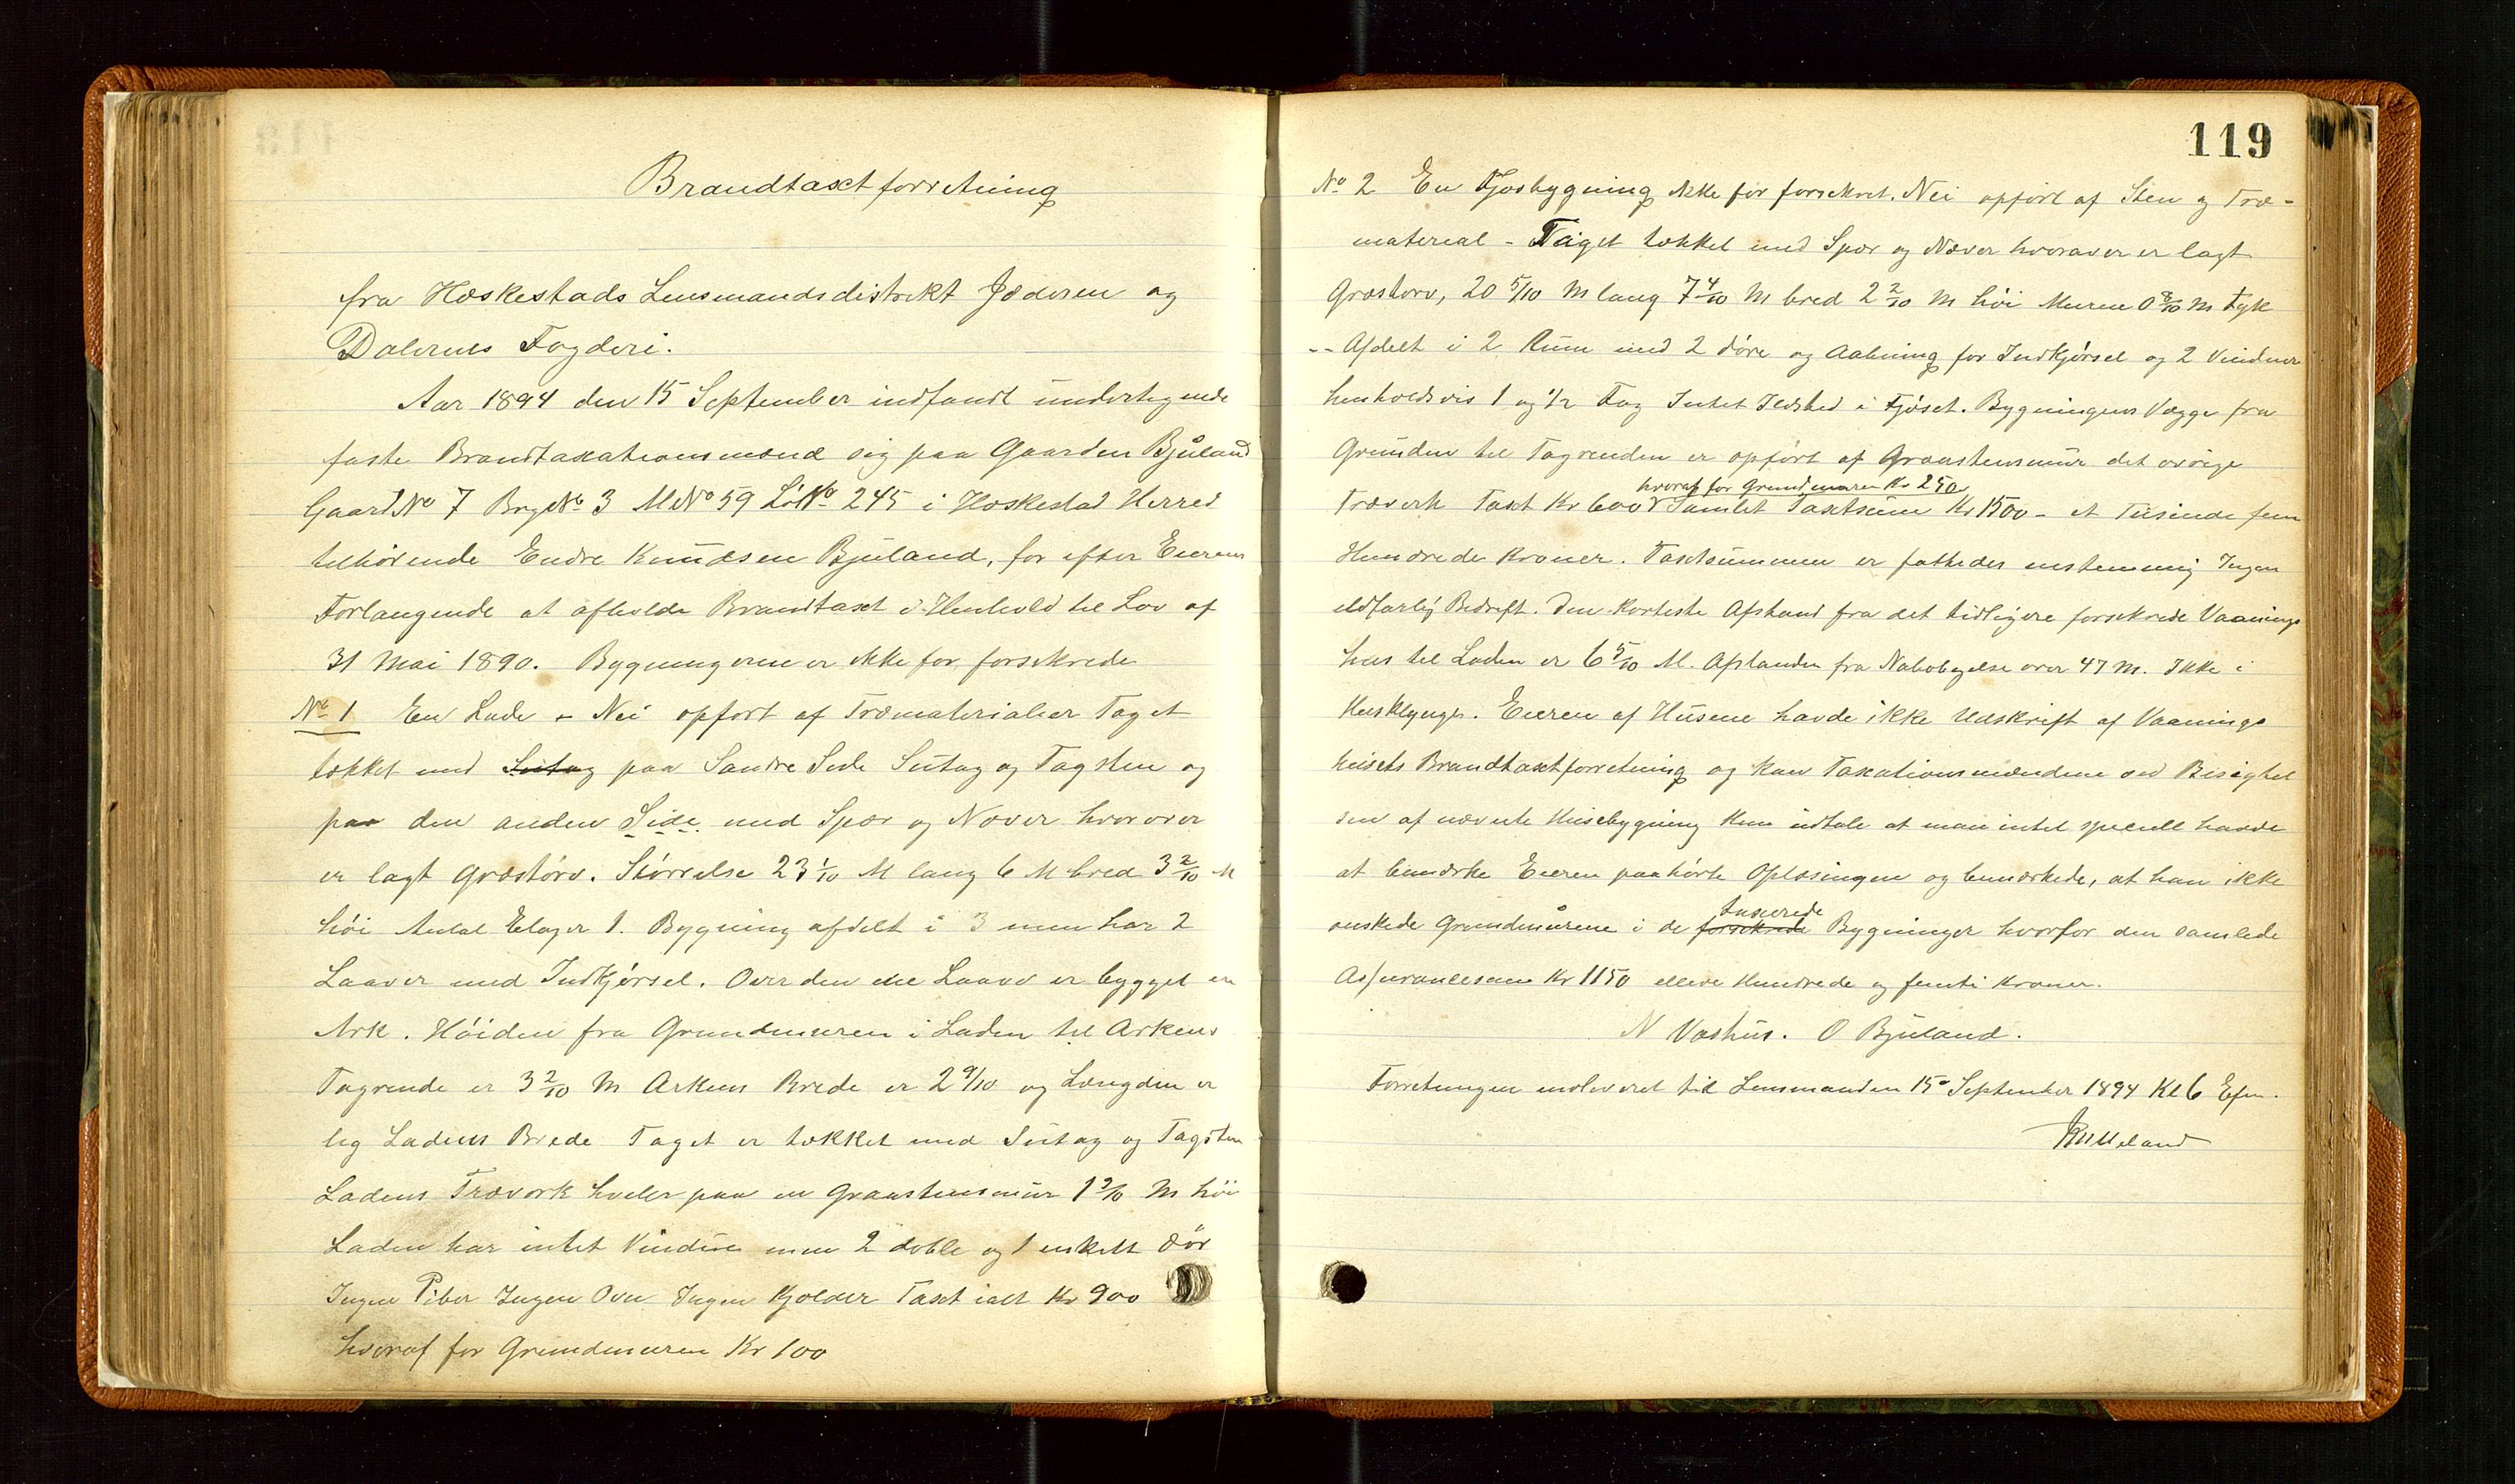 Brandtaxtforretning
fra Heskestads Lensmandsdistrikt Jæderen og
Dalernes Fogderi.
Aar 1894 den 15 September indfandt undertegnede
faste Brandtaxationsmænd sig paa Gaarden Bjuland
Gaard No 7 Brgs No 3 M No 59 Lø No 245 i Heskestad Herred
tilhørende Endre Knudsen Bjuland, for efter Eierens
Forlangende at afholde Brandtaxt i Henhold til Lov af
31 Mai 1890. Bygningerne er ikke før forsikrede
No 1 En Lade - Nei opført af Træmaterialier Taget
tækket med Sutag paa Søndre Side Sutag og Tagsten og
paa den anden Side med Spær og Næver hvorover
er lagt Græstørv. Størrelse 23 1/10 M lang 6 M bred 3 2/10 M
høi Antal Etager 1. Bygning afdelt i 3 rum har 2
Laaver med Indkjørsel. Over den ene Laave er bygget en
Ark. Høiden fra Grundmuren i Laden til Arkens
Tagrende er 3 2/10 M Arkens Brede er 2 9/10 og Længden er
lig Ladens Brede Taget er tækket med Sutag og Tagsten
Ladens Træværk hviler paa en Graastensmur 1 9/10 M høi
Laden har intet Vindue men 2 doble og 1 enkelt Dør
Ingen Piber Ingen Ovn Ingen Kjelder Taxt ialt Kr 900
hvoraf for Grundmuren Kr 100
119
No 2 En Fjøsbygning ikke før forsikret. Nei opført af Sten og Træ-
material - Taget tækket med Spær og Næver hvorover er lagt
Græstørv, 20 5/10 M lang 7 4/10 M bred 2 2/10 M høi Muren 0 8/10 M tyk
-- Afdelt i 2 Rum med 2 døre og Aabning for Indkjørsel og 2 Vinduer
henholdsvis 1 og 1/2 Fag Intet Ildsted i Fjøset. Bygningens Vægge fra
Grunden til Tagrenden er opført af Graastensmur det øvrige
hvoraf for Grundmuren Kr 250
Træverk Taxt Kr 600 Samlet Taxtsum Kr 1500 - et Tusinde fem
Hundrede Kroner. Taxtsummen er fattedes enstemmig Ingen
ildfarlig Bedrift. Den korteste Afstand fra det tidligere forsikrede Vaanings
hus til Laden er 6 5/10 M. Afstanden fra Nabobygelse over 47 M. Ikke i
Husklynge. Eieren af Husene havde ikke Udskrift af Vaanings
husets Brandtaxtforretning og kan Taxationsmændene ved Besigtel
sen af nævnte Husebygning kun udtale at man intet specielt havde
at bemærke Eieren paahørte Oplæsingen og bemærkede, at han ikke
taxerede
ønskede Grundmurene i de forsikrede Bygninger hvorfor den samlede
Assurancesum Kr 1150 elleve Hundrede og femti Kroner.
N Vashus. O Bjuland.
Forretningen indleveret til Lensmanden 15de September 1894 Kl 6 Efm.